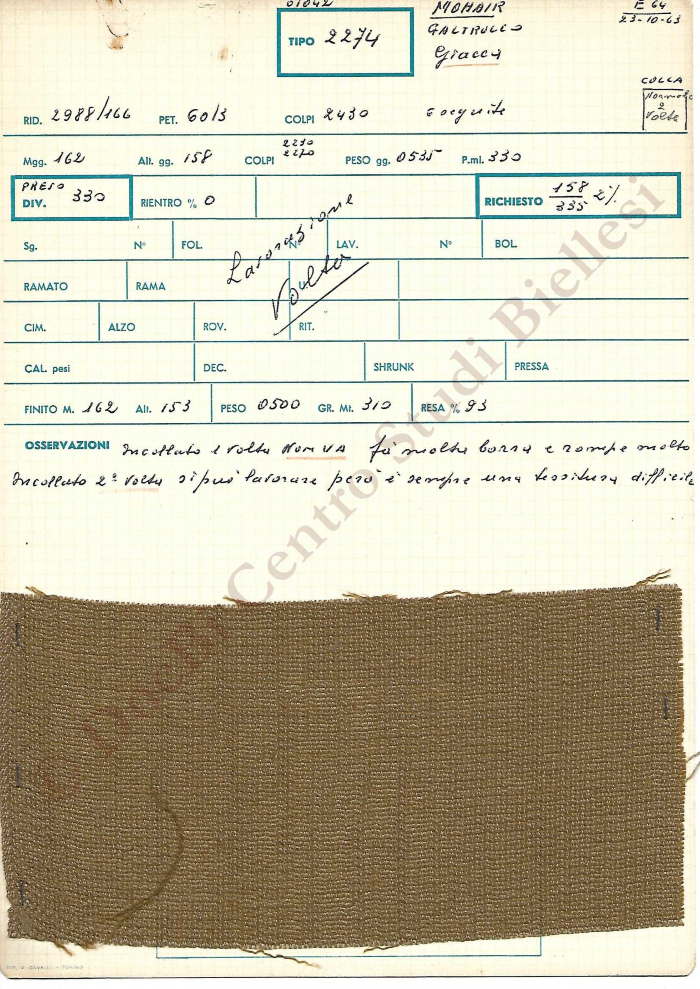 01042
TIPO 2274
MOHAIR
GALTRUCCO
Giacca
E 64
23-10-63
COLLA
Normale
2
Volte
RID. 2988/166 PET. 60/3 COLPI 2430 eseguite
2230
Mgg. 162 Alt. gg. 158 COLPI 2270 PESO gg. 0535 P.ml. 330
PRESO
DIV. 330 RIENTRO % 0 RICHIESTO 158/335 2%
Sg. N° FOL. N° LAV. N° BOL.
Lavorazione
Volta
RAMATO RAMA
CIM. ALZO ROV. RIT.
CAL. pesi DEC. SHRUNK PRESSA
FINITO M. 162 Alt. 153 PESO 0500 GR. Mt. 310 RESA % 93
OSSERVAZIONI Incollato 1 volta NON VA fà molta borra e rompe molto
Incollato 2ª volta si può lavorare però è sempre una tessitura difficile
© DocBi Centro Studi Biellesi